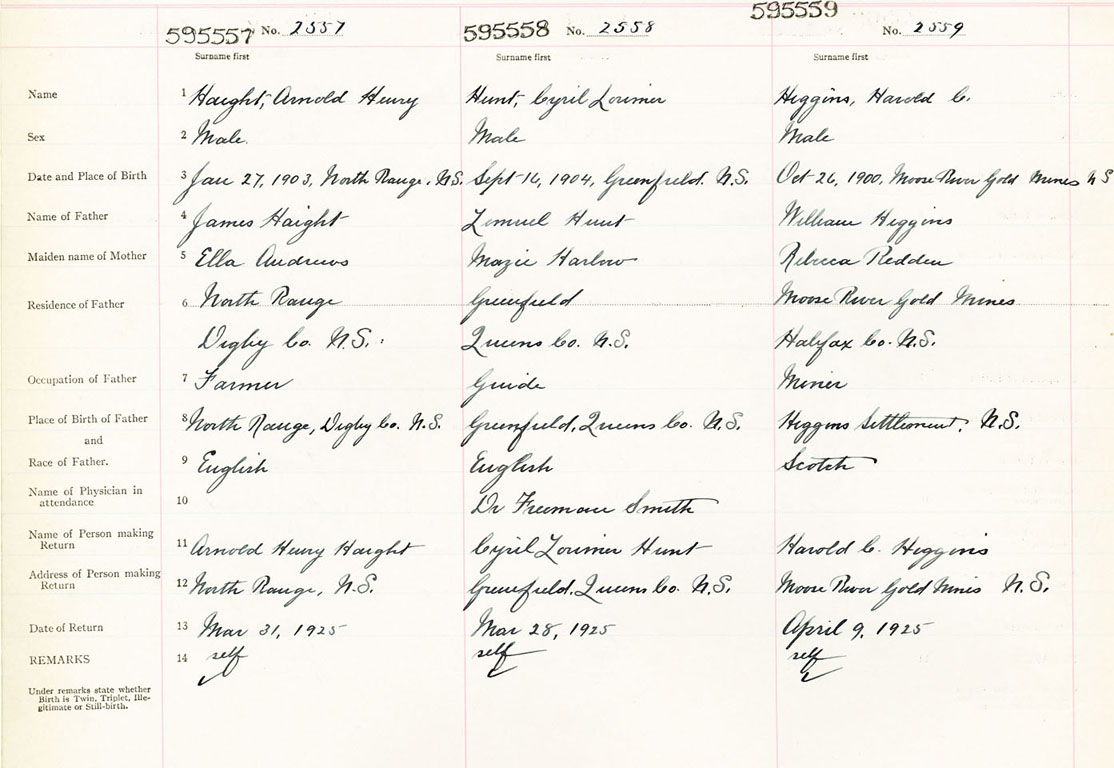 595557 No. 2557 595558 No. 2558 595559 No. 2559
Surname first Surname first Surname first
Name 1 Haight, Arnold Henry Hunt, Cyril Lorimer Higgins, Harold C.
Sex 2 Male. Male Male
Date and Place of Birth 3 Jan 27, 1903, North Range, N.S. Sept 16, 1904, Greenfield. N.S. Oct 26, 1900, Moose River Gold Mines N S
Name of Father 4 James Haight Lemuel Hunt William Higgins
Maiden name of Mother 5 Ella Andrews Mazie Harlow Rebecca Redden
Residence of Father 6 North Range Greenfield Moose River Gold Mines
Digby Co. N.S. Queens Co. N.S. Halifax Co. N.S.
Occupation of Father 7 Farmer Guide Miner
Place of Birth of Father 8 North Range, Digby Co. N.S. Greenfield, Queens Co. N.S. Higgins Settlement, N.S.
and
Race of Father. 9 English English Scotch
Name of Physician in
attendance 10 Dr Freeman Smith
Name of Person making
Return 11 Arnold Henry Haight Cyril Lorimer Hunt Harold C. Higgins
Address of Person making
Return 12 North Range, N.S. Greenfield, Queens Co. N.S. Moose River Gold Mines N.S.
Date of Return 13 Mar 31, 1925 Mar 28, 1925 April 9, 1925
REMARKS 14 self self self
Under remarks state whether
Birth is Twin, Triplet, Ille-
gitimate or Still-birth.